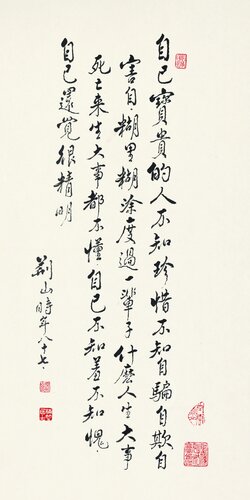 自己寶貴的人不知珍惜不知自騙自欺自
害自糊里糊涂度過一輩子什麼人生大事
死亡来生大事都不懂自己不知羞不知愧
自己還覺很精明
荊山時年八十七